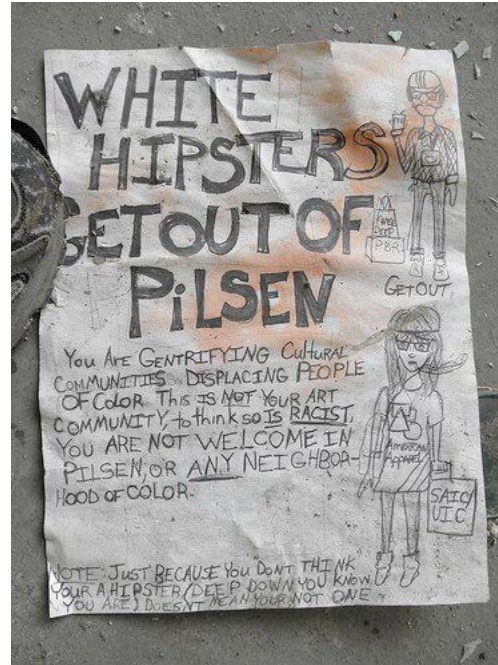 WHITE
HIPSTERS
GET OUT OF
PiLSEN
PBR
GET OUT
You ARE GENTRIFYING CULTURAL
COMMUNITIES DISPLACING PEOPLE
OF COLOR. THIS IS NOT YOUR ART
COMMUNITY, to think so IS RACIST.
YOU ARE NOT WELCOME IN
PILSEN, OR ANY NEIGHBOR-
HOOD OF COLOR.
American
Apparel
SAIC/
UIC
NOTE: JUST BECAUSE YOU DONT THINK
YOUR A HIPSTER (DEEP DOWN YOU KNOW
YOU ARE) DOESNT MEAN YOUR NOT ONE